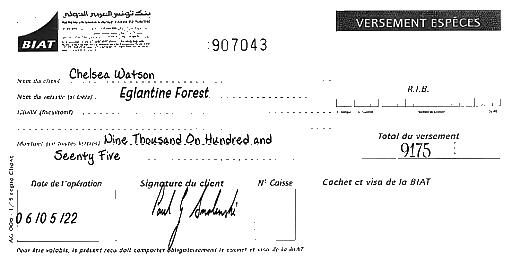 بنك تونس العربي الدولي
BIAT
:907043
VERSEMENT ESPÈCES
Nom du client Chelsea Watson
Nom du verseur (si tiers) Eglantine Forest
R.I.B.
Libellé (facultatif)
Montant (en toutes lettres) Nine Thousand On Hundred and
Seenty Five
Total du versement
9175
Date de l'opération Signature du client N° Caisse Cachet et visa de la BIAT
06/05/22
Pour être valable, le présent reçu doit comporter obligatoirement le cachet et visa de la BIAT